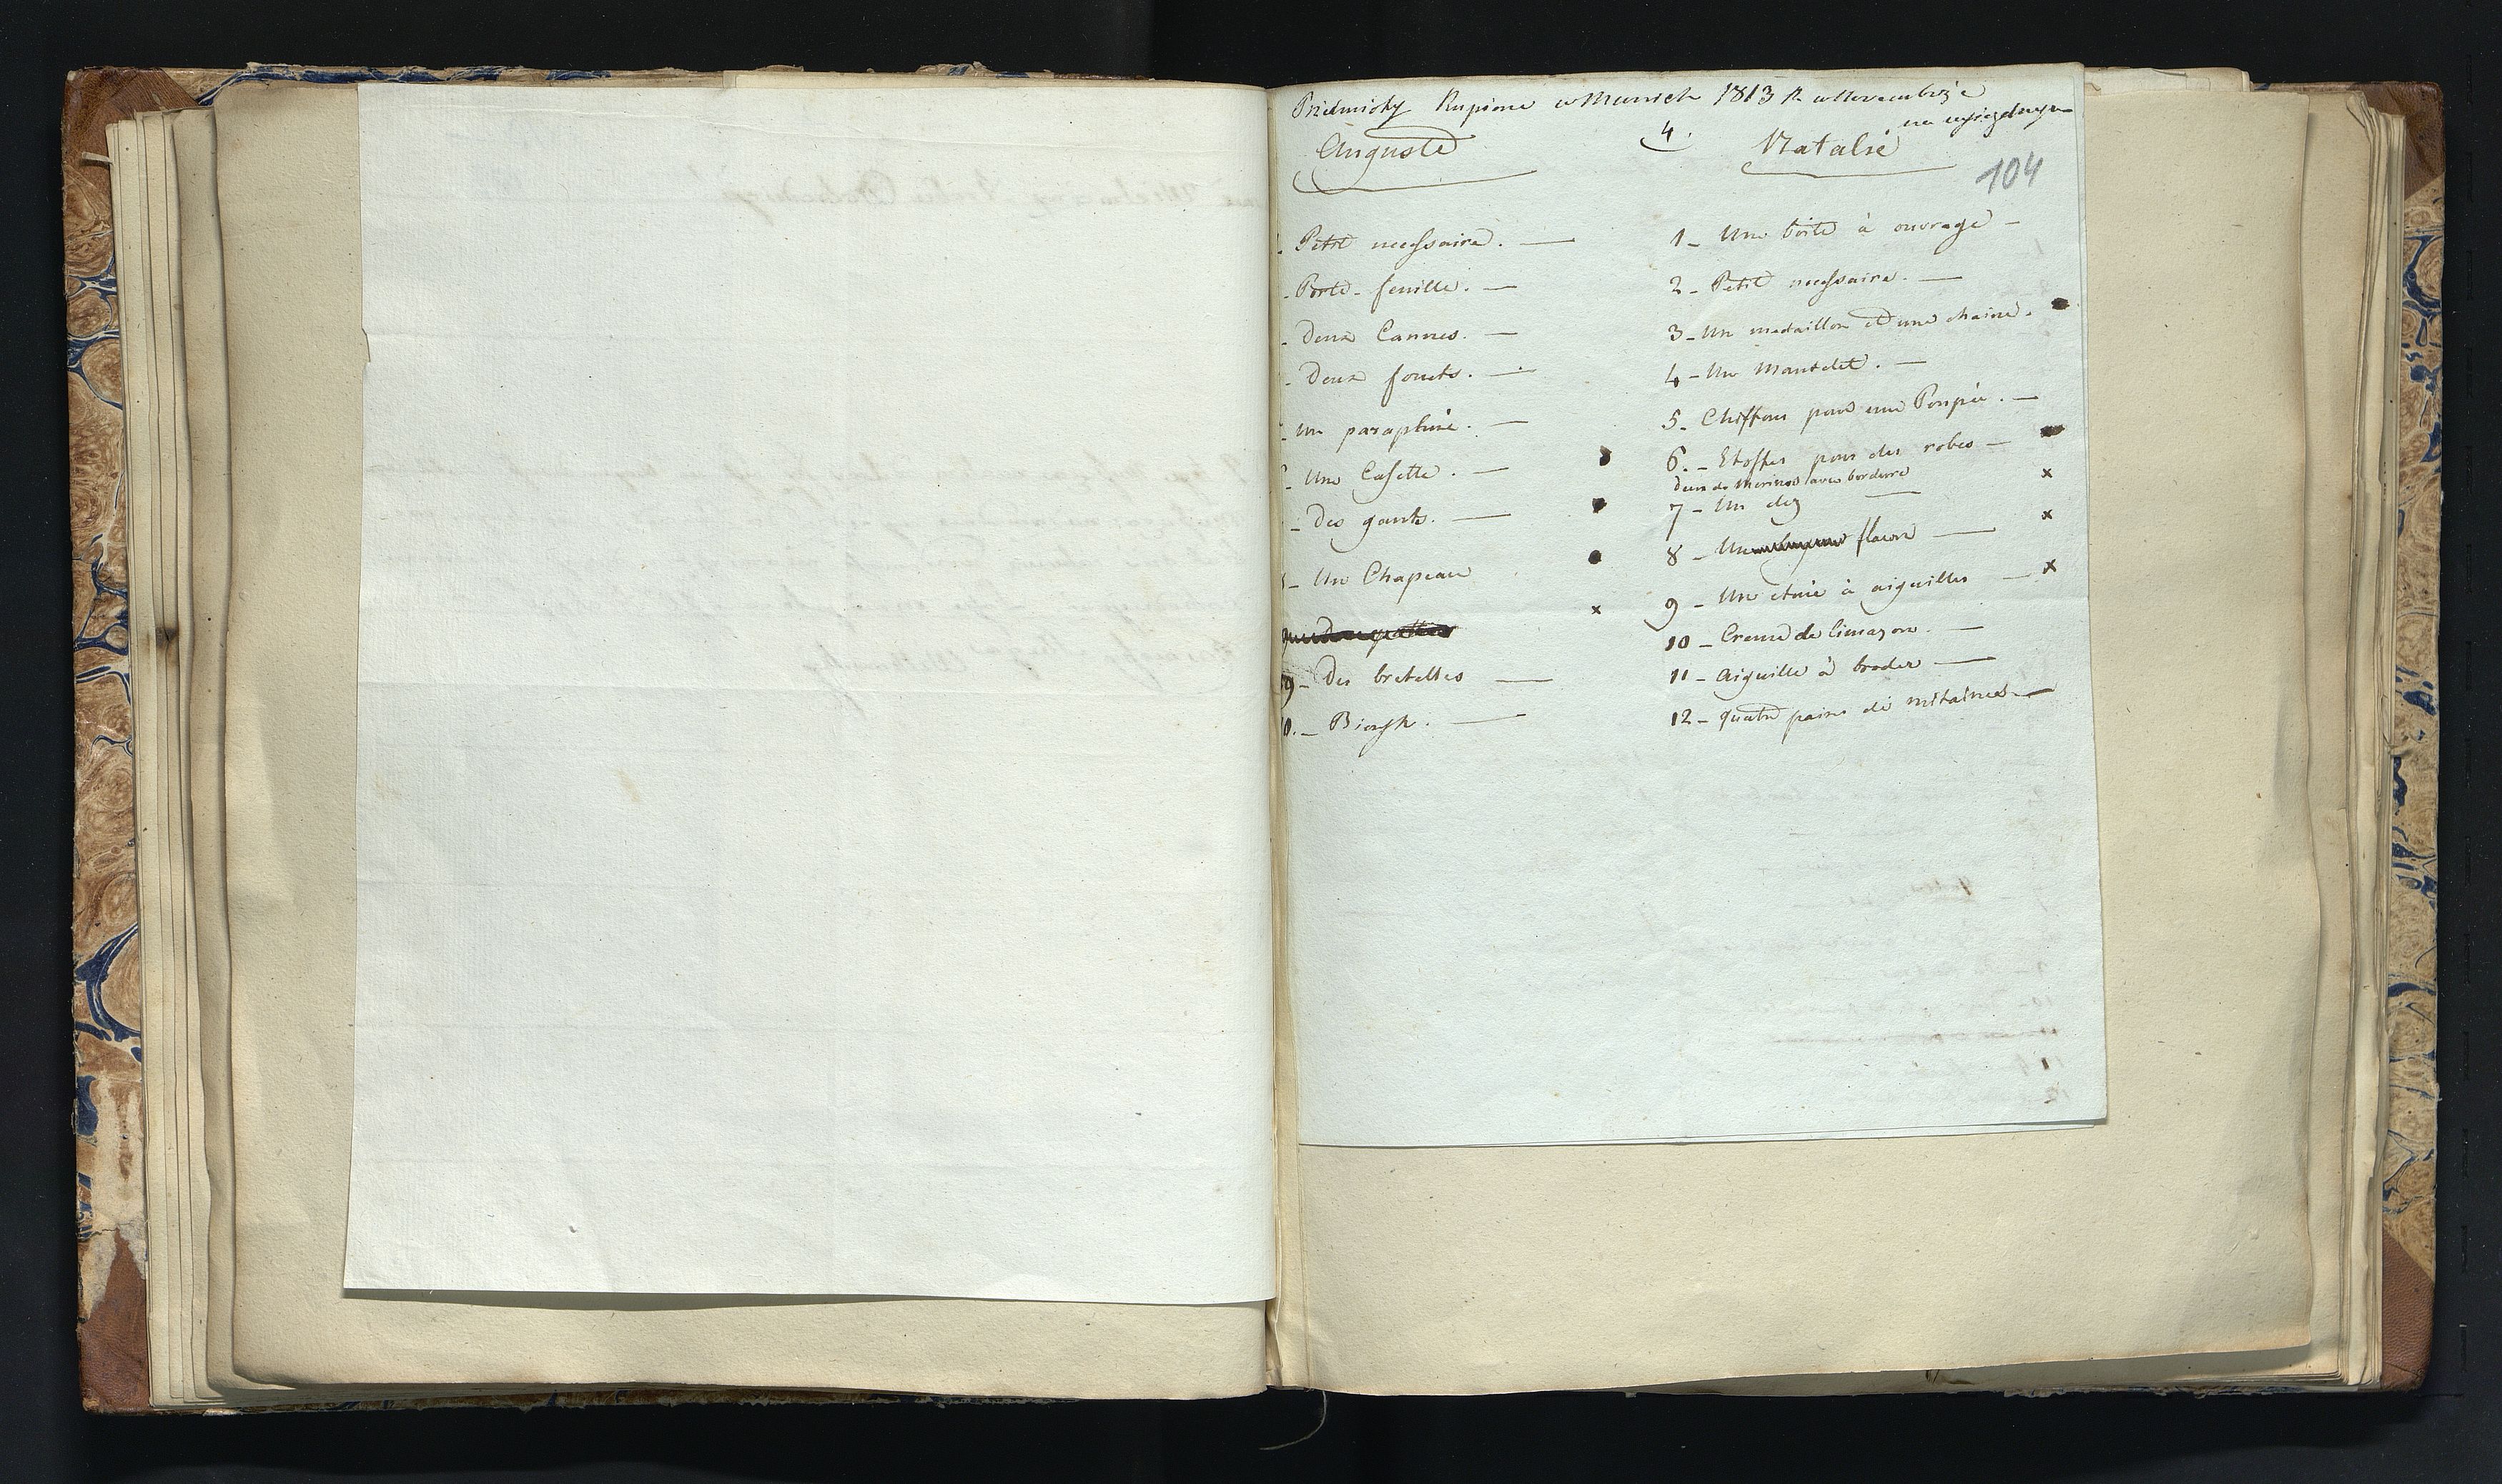 Przedmioty Kupione w Munich 1813 R. w Novembrze
na wyiezdnym
Auguste
4.
Natalie
104
- Petit necessaire. —
- Porte-feuille. —
- Deux Cannes. —
- Deux fouets. —
- Un parapluie. —
- Une Casette. —
- Des gants. —
- Un Chapeau
9 - Des bretelles —
0. -
1 - Une boite à ouvrage —
2 - Petit necessaire. —
3 - Un medaillon et une chaine.
4 - Un Mantelet. —
5. Chiffons pour une Poupée. —
6. - Etoffes pour des robes —
deux de Merinos avec bordure
7 - Un dez —
8 - Un flacon —
9 - Un etuie à aiguilles —
10 - Creme de Limaçon. —
11 - Aiguille à broder —
12 - quatre paires de mitaines. —